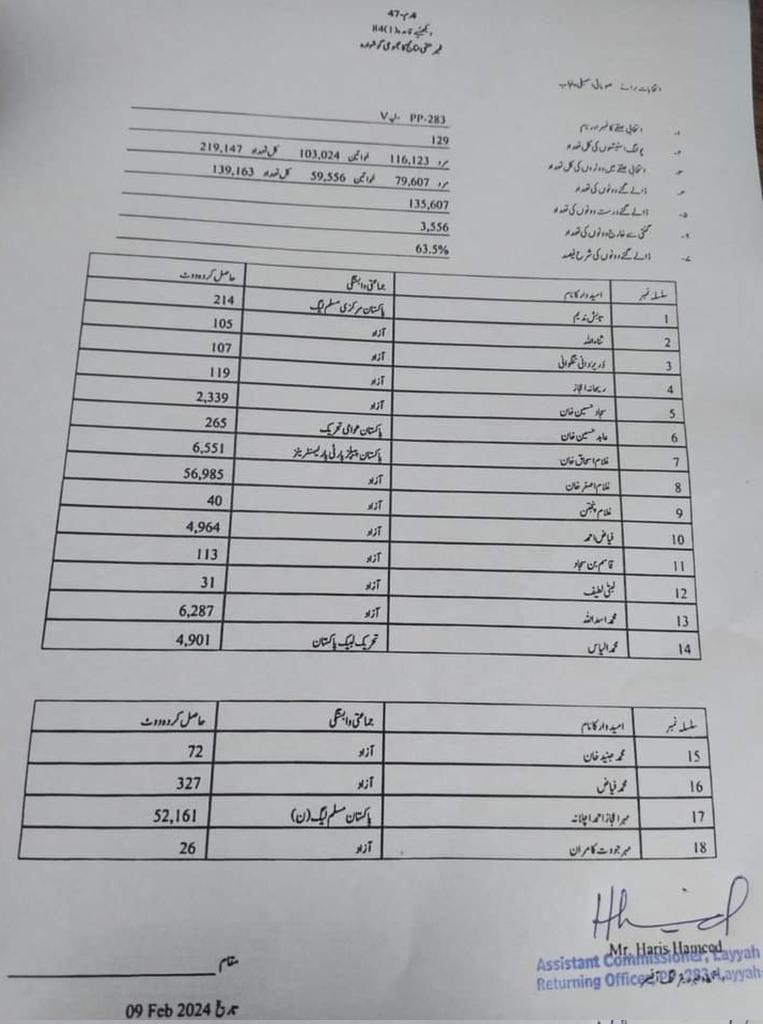 فارم 47
دیکھیے قاعدہ 84(1)
غیر حتمی نتائج کا مجموعی گوشوارہ
انتخابات برائے صوبائی اسمبلی پنجاب
۱۔ انتخابی حلقے کا نمبر اور نام PP-283 لیہ-V
۲۔ پولنگ اسٹیشنوں کی کل تعداد 129
۳۔ انتخابی حلقے میں ووٹروں کی کل تعداد مرد 116,123 خواتین 103,024 کل تعداد 219,147
۴۔ ڈالے گئے ووٹوں کی تعداد مرد 79,607 خواتین 59,556 کل تعداد 139,163
۵۔ ڈالے گئے درست ووٹوں کی تعداد 135,607
۶۔ گنتی سے خارج ووٹوں کی تعداد 3,556
۷۔ ڈالے گئے ووٹوں کی شرح فیصد 63.5%
سلسلہ نمبر امیدوار کا نام جماعتی وابستگی حاصل کردہ ووٹ
1 تابش ندیم پاکستان مرکزی مسلم لیگ 214
2 ثناء اللہ آزاد 105
3 آزاد 107
4 ریحانہ اعجاز آزاد 119
5 سجاد حسین خان آزاد 2,339
6 عابد حسین خان پاکستان عوامی تحریک 265
7 غلام اسحاق خان پاکستان پیپلز پارٹی پارلیمنٹیرینز 6,551
8 غلام اصغر خان آزاد 56,985
9 غلام پنجتن آزاد 40
10 فیاض احمد آزاد 4,964
11 قاسم بن سجاد آزاد 113
12 لبنیٰ لطیف آزاد 31
13 محمد اسد اللہ آزاد 6,287
14 محمد الیاس تحریک لبیک پاکستان 4,901
سلسلہ نمبر امیدوار کا نام جماعتی وابستگی حاصل کردہ ووٹ
15 محمد جنید خان آزاد 72
16 محمد فیاض آزاد 327
17 مہر اعجاز احمد اچلانہ پاکستان مسلم لیگ (ن) 52,161
18 مہر جودت کامران آزاد 26
Mr. Haris Hameed
Assistant Commissioner, Layyah
Returning Officer PP-283 Layyah
مقام
مورخہ 09 Feb 2024